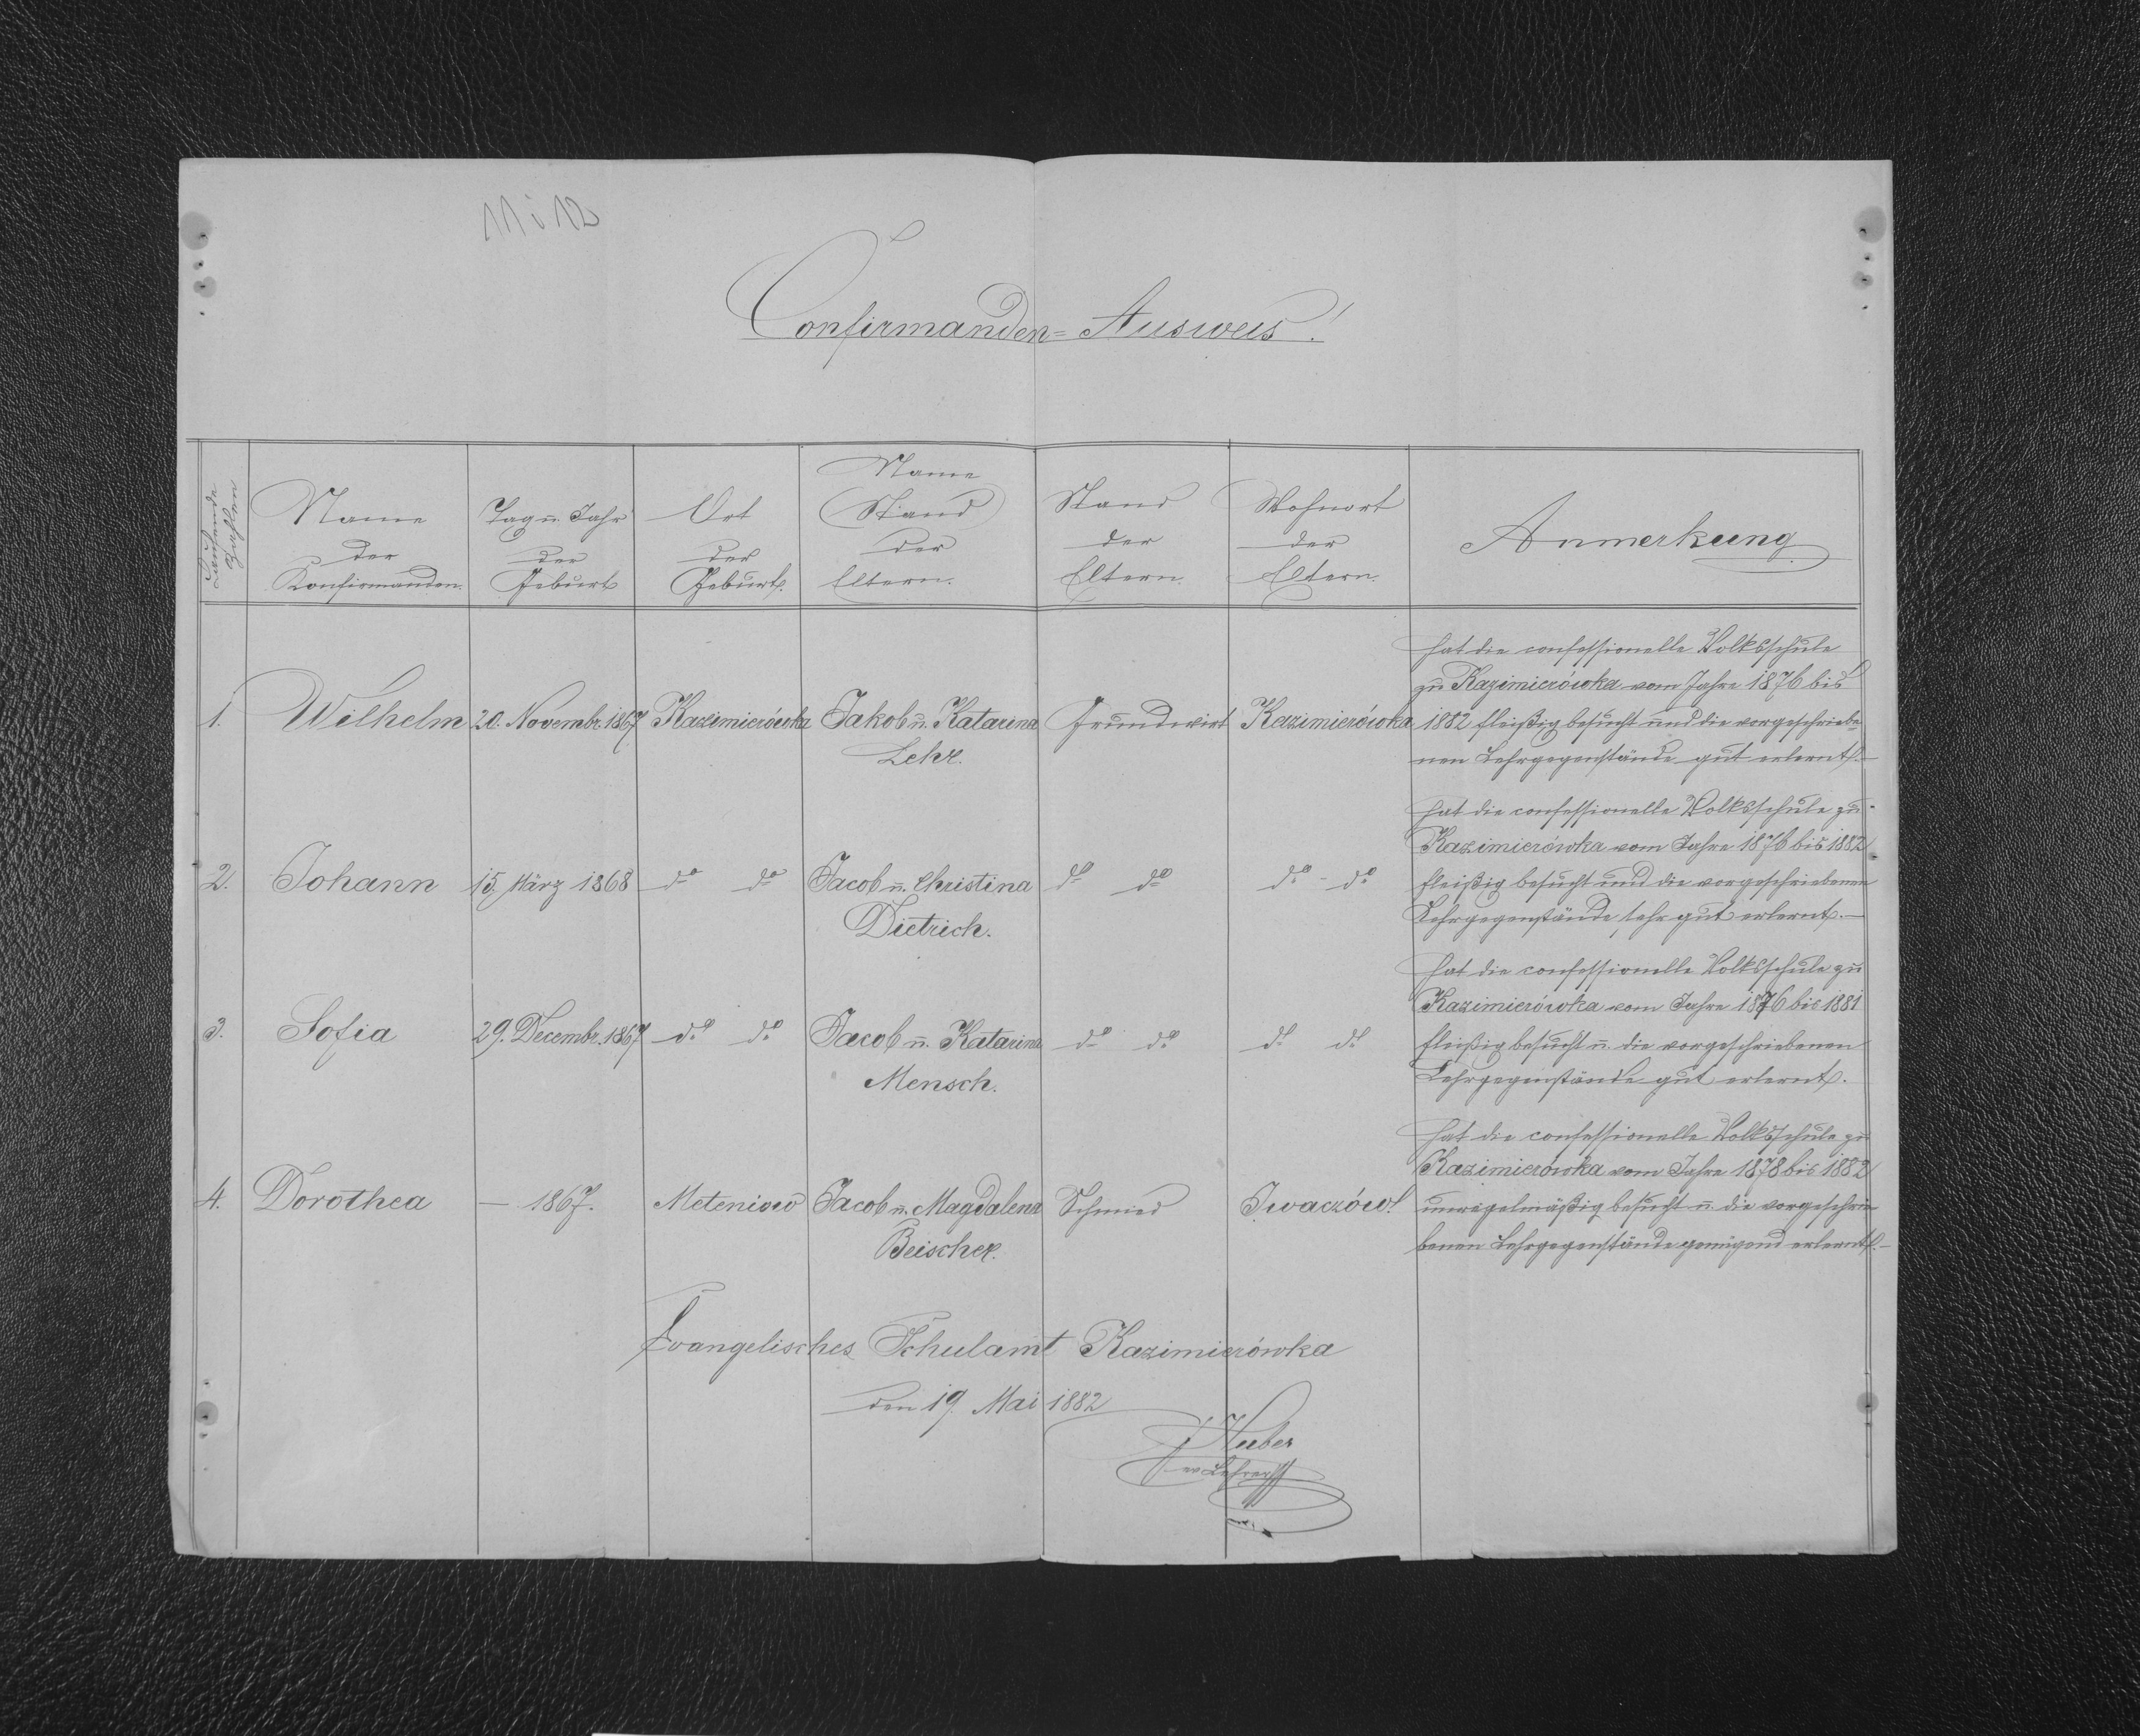 11 i 12
Confirmanden-Ausweis!
Laufende Zahlen
Name der Konfirmanden.
Tag u. Jahr der Geburt
Ort der Geburt.
Name (Stand) der Eltern.
Stand der Eltern.
Wohnort der Eltern.
Anmerkung
1. Wilhelm 20. Novembr. 1867 Kazimierówka Jakob u. Katarina Lehr. Grundwirt Kazimierówka
hat die confessionelle Volksschule
zu Kazimierówka vom Jahre 1876 bis
1882 fleißig besucht und die vorgeschriebe-
nen Lehrgegenstände gut erlernt.–
2. Johann 15. März 1868 do do Jacob u. Christina Dietrich. do do do - do
hat die confessionelle Volksschule zu
Kazimierówka vom Jahre 1876 bis 1882
fleißig besucht und die vorgeschriebenen
Lehrgegenstände sehr gut erlernt.–
3. Sofia 29. Decembr. 1867 do do Jacob u. Katarina Mensch. do do do do
hat die confessionelle Volksschule zu
Kazimierówka vom Jahre 1876 bis 1881
fleißig besucht u. die vorgeschriebenen
Lehrgegenstände gut erlernt.
4. Dorothea – 1867. Meteniow Jacob u. Magdalena Beischer. Schmied Iwaczów!
hat die confessionelle Volksschule zu
Kazimierówka vom Jahre 1878 bis 1882
unregelmäßig besucht u. die vorgeschrie-
benen Lehrgegenstände genügend erlernt.–
Evangelisches Schulamt Kazimierówka
den 19. Mai 1882
Huber
ev. Lehrer